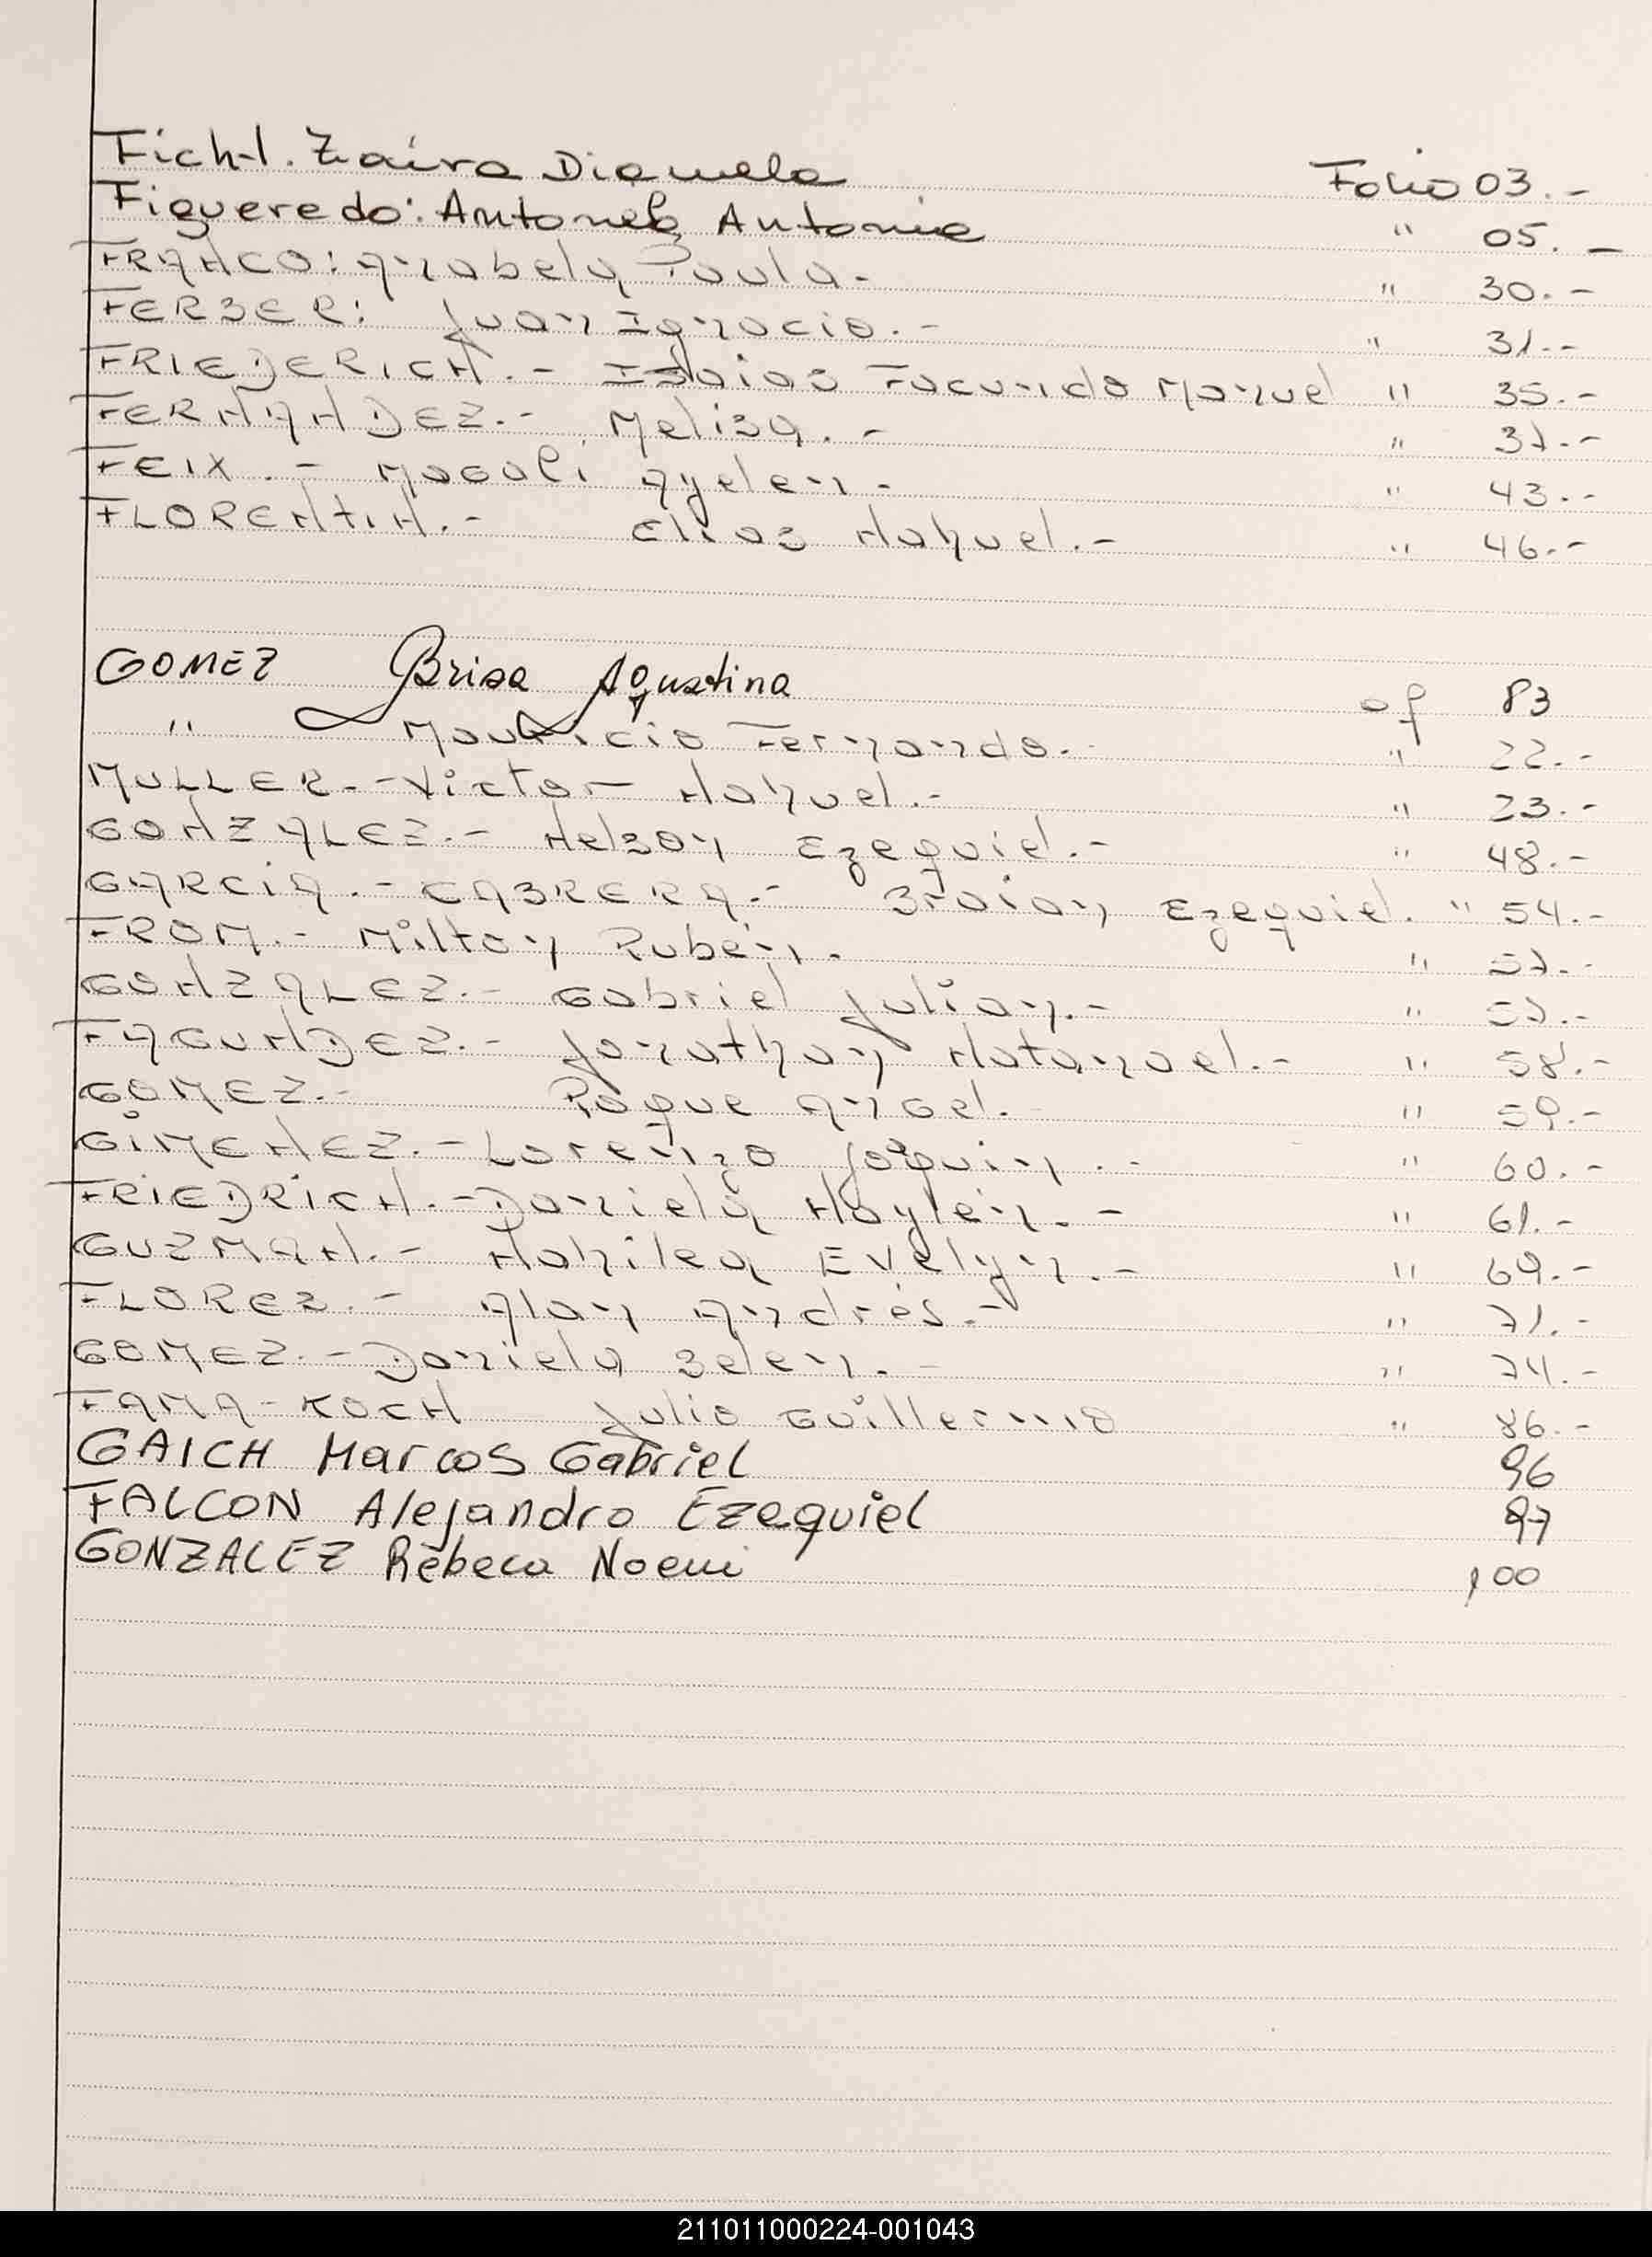 Fichtl. Zaira Diamela Folio 03.-
Figueredo: Antonela Antonia " 05.-
FRANCO: Anabela Paula. " 30.-
FERBER: Juan Ignacio.- " 31.-
FRIEDERICH.- Isaias Facundo Manuel " 35.-
FERNANDEZ.- Melisa.- " 37.-
FEIX.- Magali Ayelen.- " 43.-
FLORENTIN.- Elias Nahuel.- " 46.-
GOMEZ Brisa Agustina of 83
" Mauricio Fernando. " 22.-
MULLER.- Victor Nahuel.- " 23.-
GONZALEZ.- Nelson Ezequiel.- " 48.-
GARCIA.- CABRERA.- Braian Ezequiel. " 54.-
FROM.- Milton Rubén. " 57.-
GONZALEZ.- Gabriel Julian.- " 57.-
FAGUNDEZ.- Jonathan Natanael.- " 58.-
GOMEZ.- Roque Angel. " 59.-
GIMENEZ.- Lorenzo Joaquin.- " 60.-
FRIEDRICH.- Daniela Naylein.- " 61.-
GUZMAN.- Evelyn.- " 69.-
FLOREZ.- Alan Andrés.- " 71.-
GOMEZ.- Daniela Belen.- " 74.-
FAMA-KOCH Julio Guillermo " 86.-
GAICH Marcos Gabriel 96
FALCON Alejandro Ezequiel 97
GONZALEZ Rebeca Noemi 100
211011000224-001043